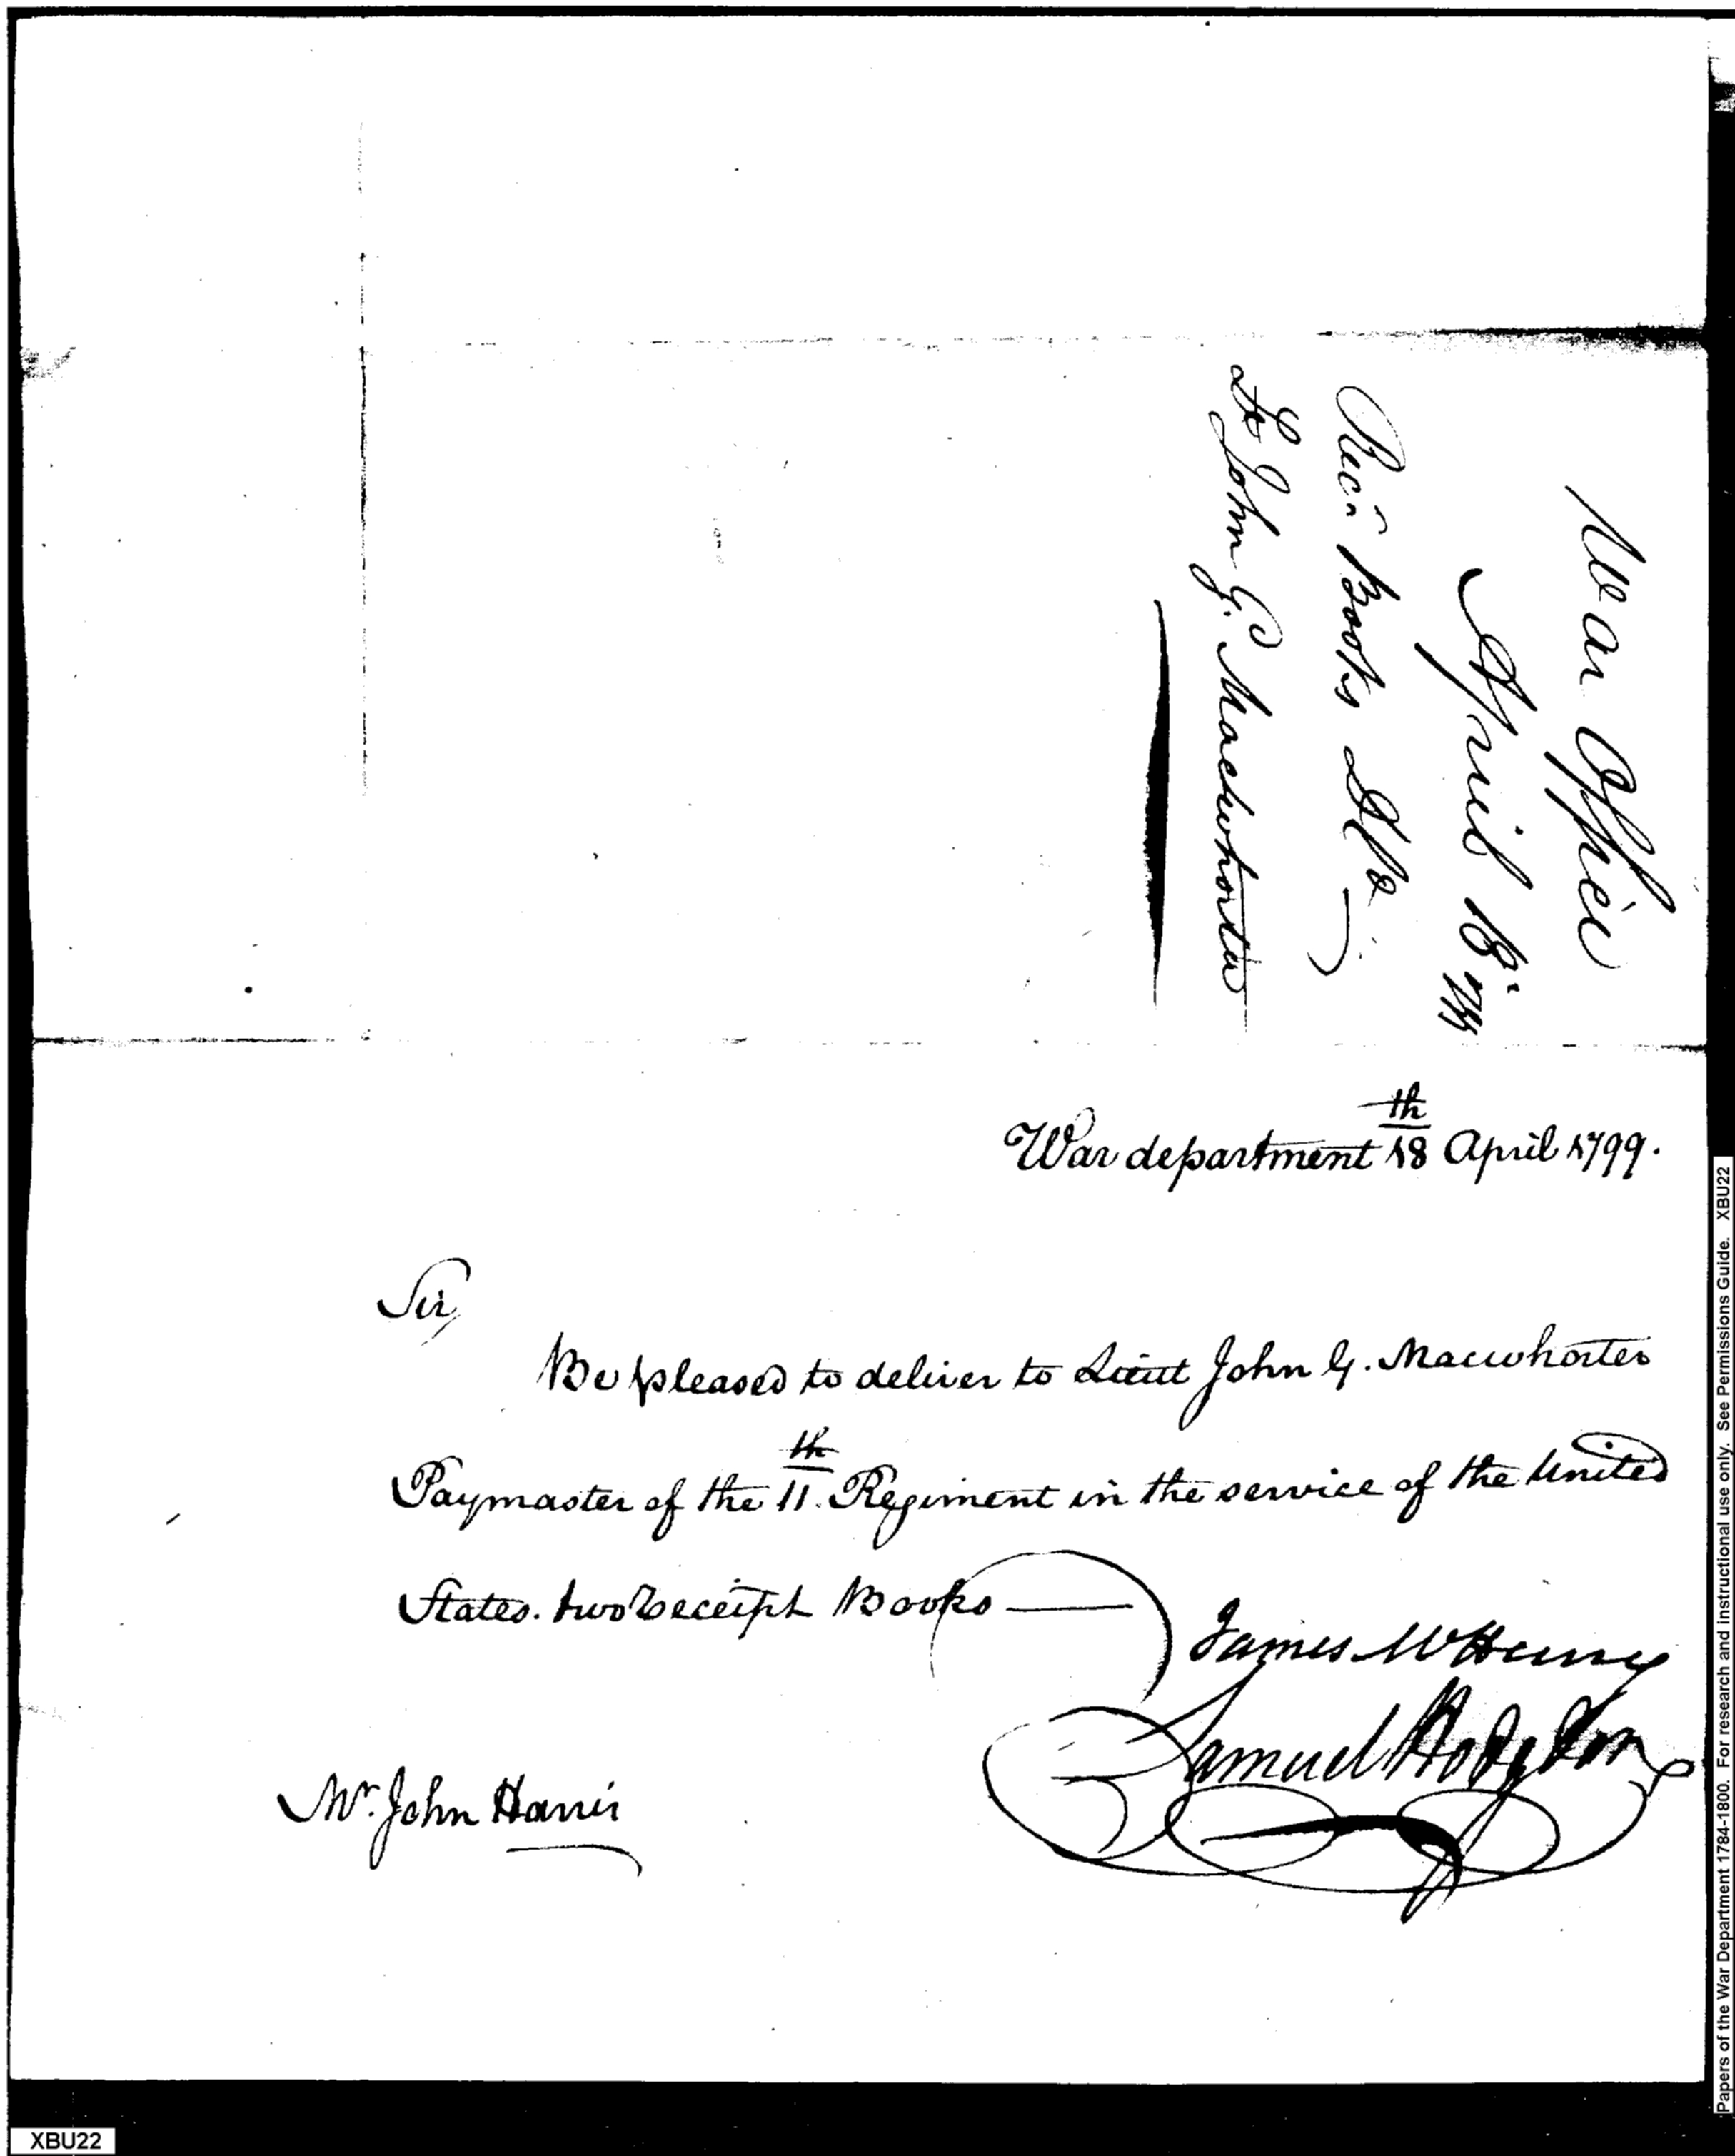 War Office
April 18th 1799
Books
Lt John G. Macwhorter
War department 18th April 1799.
Sir,
Be pleased to deliver to Lieut John G. Macwhorter
Paymaster of the 11th Regiment in the service of the United
States. two receipt Books —
James McHenry
Samuel Hodgdon
Mr. John Harris
Papers of the War Department 1784-1800. For research and instructional use only. See Permissions Guide. XBU22
XBU22